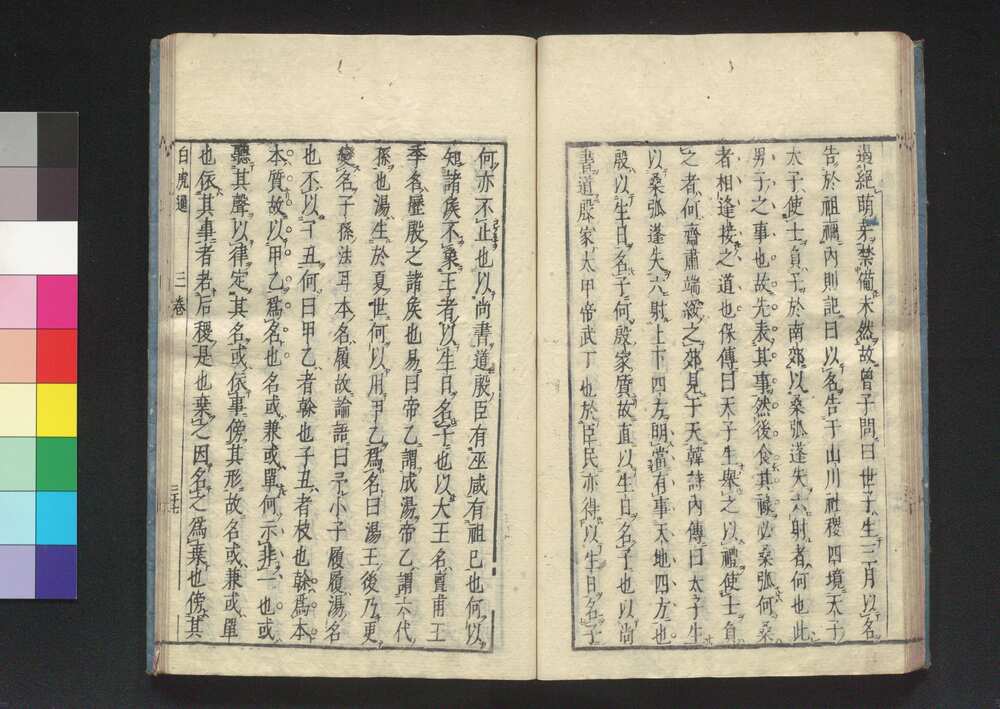 遏絕萌牙禁備未然故曾子問曰世子生三月以名
告於祖禰內則記曰以名告于山川社稷四境天子
太子使士負子於南郊以桑弧蓬矢六射者何也此
男子之事也故先表其事然後食其祿必桑弧何桑
者相逢接之道也保傅曰天子生舉之以禮使士負
之者何齋肅端綏之郊見于天韓詩內傳曰太子生
以桑弧蓬矢六射上下四方明當有事天地四方也
殷以生日名子何殷家質故直以生日名子也以尚
書道殷家太甲帝武丁也於臣民亦得以生日名子
何亦不止也以尚書道殷臣有巫咸有祖已也何以
知諸侯不象王者以生日名子也以太王名亶甫王
季名歷殷之諸侯也易曰帝乙謂成湯帝乙謂六代
孫也湯生於夏世何以用甲乙爲名曰湯王後乃更
變名子孫法耳本名履故論語曰予小子履履湯名
也不以丁丑何曰甲乙者幹也子丑者枝也幹爲本
本質故以甲乙爲名也名或兼或單何示非一也或
聽其聲以律定其名或依事傍其形故名或兼或單
也依其事者若后稷是也棄之因名之爲棄也傍其
白虎通 三卷 三十七